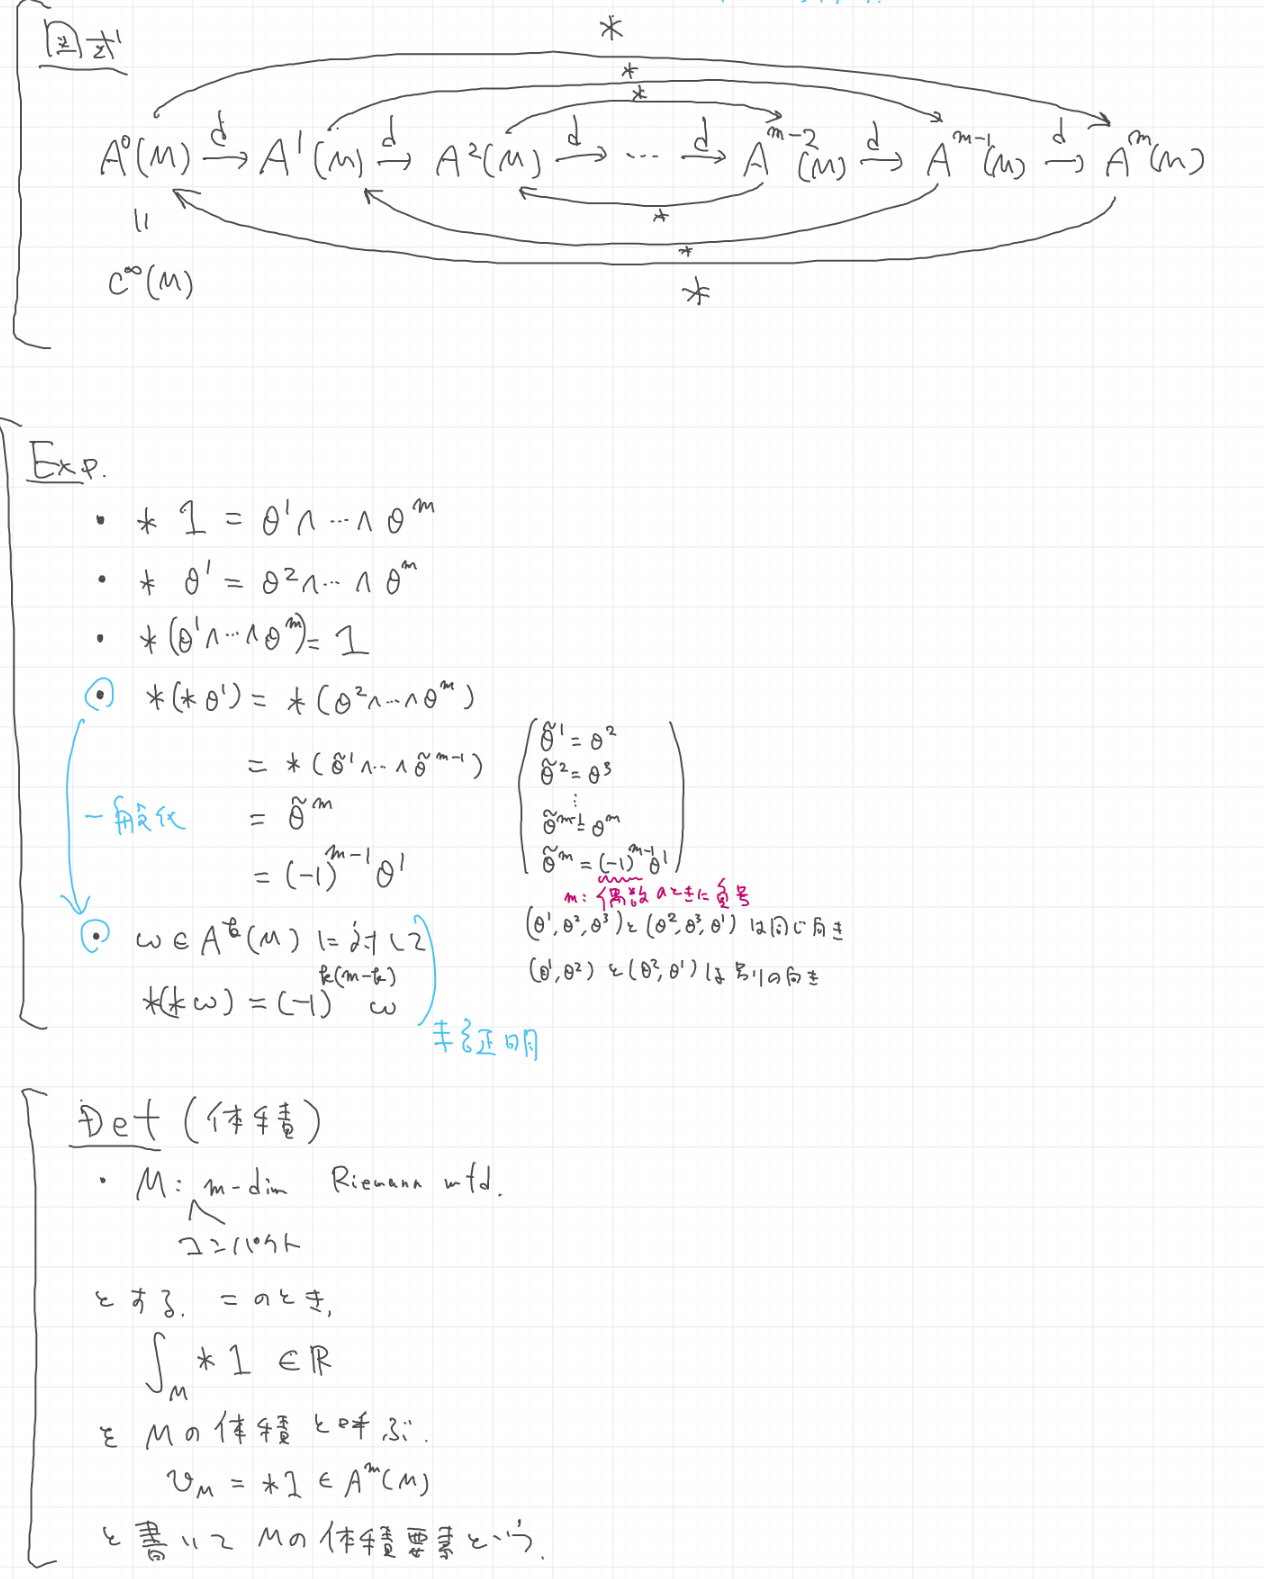 図式
*
*
*
A⁰(M) d→ A¹(M) d→ A²(M) d→ … d→ A^{m-2}(M) d→ A^{m-1}(M) d→ A^m(M)
*
*
*
=
C^∞(M)
Exp.
・ * 1 = θ¹∧…∧θ^m
・ * θ¹ = θ²∧…∧θ^m
・ *(θ¹∧…∧θ^m) = 1
・ *(*θ¹) = *(θ²∧…∧θ^m)
= *(θ̃¹∧…∧θ̃^{m-1})
= θ̃^m
= (-1)^{m-1} θ¹
θ̃¹ = θ²
θ̃² = θ³
⋮
θ̃^{m-1} = θ^m
θ̃^m = (-1)^{m-1} θ¹
m: 偶数のときに負号
(θ¹, θ², θ³) と (θ², θ³, θ¹) は同じ向き
(θ¹, θ²) と (θ², θ¹) は別の向き
一般化
・ ω ∈ A^k(M) に対して
*(*ω) = (-1)^{k(m-k)} ω
証明
Def (体積)
・ M: m-dim Riemann mfd.
コンパクト
とする. このとき,
∫_M *1 ∈ ℝ
を Mの体積と呼ぶ.
v_M = *1 ∈ A^m(M)
と書いて Mの体積要素という.